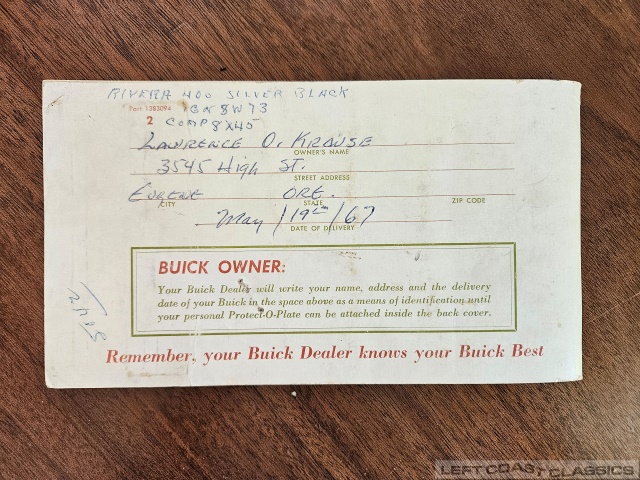 RIVERA 400 SILVER BLACK
Part 1383094
2 COMP 8X45
LAWRENCE O. KRAUSE
OWNER'S NAME
3545 High ST.
STREET ADDRESS
EUGENE ORE.
CITY STATE ZIP CODE
May / 19th / 67
DATE OF DELIVERY
BUICK OWNER:
Your Buick Dealer will write your name, address and the delivery
date of your Buick in the space above as a means of identification until
your personal Protect-O-Plate can be attached inside the back cover.
Remember, your Buick Dealer knows your Buick Best
LEFT COAST CLASSICS